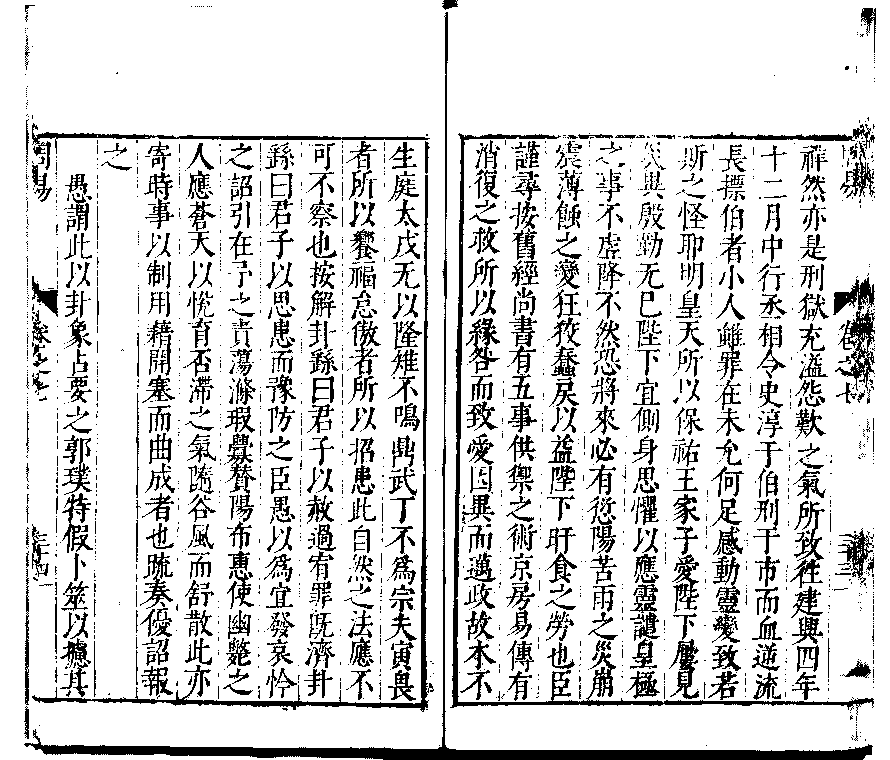 祥然亦是刑獄充溢怨歎之氣所致往建興四年
十二月中行丞相令史淳于伯刑于市而血逆流
長摽伯者小人雖罪在未允何足感動靈變致若
斯之怪耶明皇天所以保祐王家子愛陛下屢見
災異殷勤无已陛下宜側身思懼以應靈譴皇極
之事不虛降不然恐將來必有愆陽苦雨之災崩
震薄蝕之變狂狡蠢戾以益陛下旰食之勞也臣
謹尋按舊經尚書有五事供禦之術京房易傳有
消復之救所以緣咎而致愛因異而邁政故木不
生庭太戊无以隆雉不鳴鼎武丁不爲宗夫寅畏
者所以饗福怠傲者所以招患此自然之法應不
可不察也按解卦繇曰君子以赦過宥罪旣濟卦
繇曰君子以思患而豫防之臣愚以爲宜發哀矜
之詔引在予之責蕩滌瑕釁賛陽布惠使幽斃之
人應蒼天以悅育否滯之氣隨谷風而舒散此亦
寄時事以制用藉開塞而曲成者也疏奏優詔報
之
愚謂此以卦象占要之郭璞特假卜筮以癮其
周易
卷之七
三十三
周易
卷之七
三十四